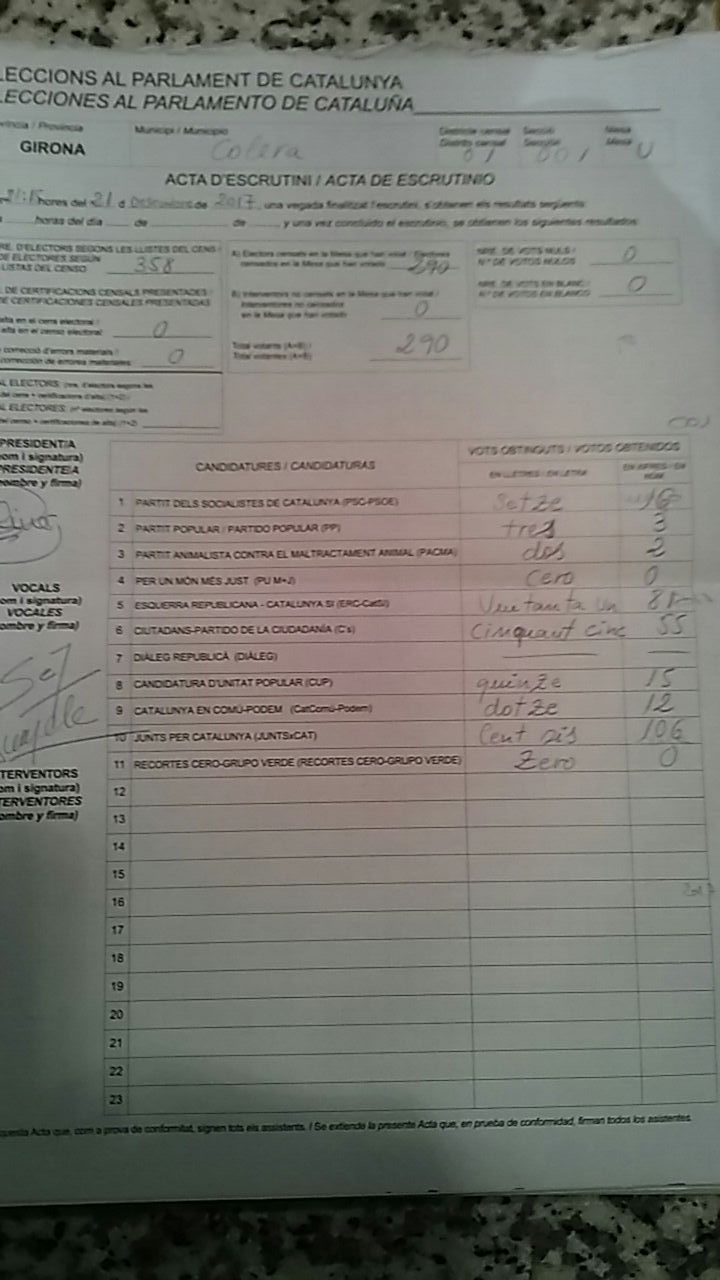 LECCIONS AL PARLAMENT DE CATALUNYA
LECCIONES AL PARLAMENTO DE CATALUÑA
víncia / Provincia Municipi / Municipio Districte censal Secció Mesa
Distrito censal Sección Mesa
GIRONA Colera 01 001 U
ACTA D'ESCRUTINI / ACTA DE ESCRUTINIO
hores del 21 d de 2017, una vegada finalitzat l'escrutini, s'obtenen els resultats següents:
horas del día de de y una vez concluido el escrutinio, se obtienen los siguientes resultados:
RE. D'ELECTORS SEGONS LES LLISTES DEL CENS /
DE ELECTORES SEGÚN
LISTAS DEL CENSO 358
DE CERTIFICACIONS CENSALS PRESENTADES /
DE CERTIFICACIONES CENSALES PRESENTADAS
alta en el cens electoral /
alta en el censo electoral 0
correcció d'errors materials /
corrección de errores materiales 0
L ELECTORS:
AL ELECTORES:
A) Electors censats en la Mesa que han votat / Electores
censados en la Mesa que han votado 290
B) Interventors no censats en la Mesa que han votat /
Interventores no censados
en la Mesa que han votado 0
Total votants (A+B) /
Total votantes (A+B) 290
NRE. DE VOTS NULS /
N.º DE VOTOS NULOS 0
NRE. DE VOTS EN BLANC /
N.º DE VOTOS EN BLANCO 0
PRESIDENT/A
om i signatura)
PRESIDENTE/A
ombre y firma)
VOCALS
om i signatura)
VOCALES
ombre y firma)
TERVENTORS
om i signatura)
TERVENTORES
ombre y firma)
CANDIDATURES / CANDIDATURAS VOTS OBTINGUTS / VOTOS OBTENIDOS
EN LLETRES / EN LETRA EN XIFRES / EN NÚM.
1 PARTIT DELS SOCIALISTES DE CATALUNYA (PSC-PSOE) Setze 16
2 PARTIT POPULAR / PARTIDO POPULAR (PP) tres 3
3 PARTIT ANIMALISTA CONTRA EL MALTRACTAMENT ANIMAL (PACMA) dos 2
4 PER UN MÓN MÉS JUST (PU M+J) Cero 0
5 ESQUERRA REPUBLICANA - CATALUNYA SÍ (ERC-CatSí) Vuitanta un 81
6 CIUTADANS-PARTIDO DE LA CIUDADANÍA (C's) Cinquant cinc 55
7 DIÀLEG REPUBLICÀ (DIÀLEG)
8 CANDIDATURA D'UNITAT POPULAR (CUP) quinze 15
9 CATALUNYA EN COMÚ-PODEM (CatComú-Podem) dotze 12
10 JUNTS PER CATALUNYA (JUNTSxCAT) Cent sis 106
11 RECORTES CERO-GRUPO VERDE (RECORTES CERO-GRUPO VERDE) Zero 0
12
13
14
15
16
17
18
19
20
21
22
23
questa Acta que, com a prova de conformitat, signen tots els assistents. / Se extiende la presente Acta que, en prueba de conformidad, firman todos los asistentes.